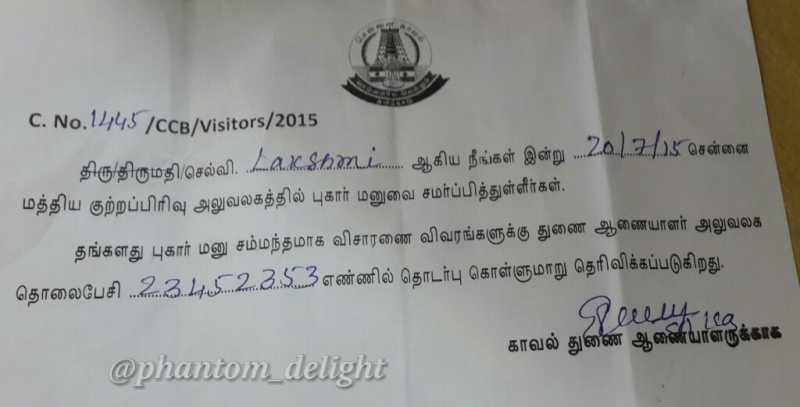 சென்னை காவல்
C. No. 1445/CCB/Visitors/2015
திரு/திருமதி/செல்வி. Lakshmi ஆகிய நீங்கள் இன்று 20/7/15 சென்னை
மத்திய குற்றப்பிரிவு அலுவலகத்தில் புகார் மனுவை சமர்ப்பித்துள்ளீர்கள்.
தங்களது புகார் மனு சம்மந்தமாக விசாரணை விவரங்களுக்கு துணை ஆணையாளர் அலுவலக
தொலைபேசி 23452353 எண்ணில் தொடர்பு கொள்ளுமாறு தெரிவிக்கப்படுகிறது.
காவல் துணை ஆணையாளருக்காக
@phantom_delight